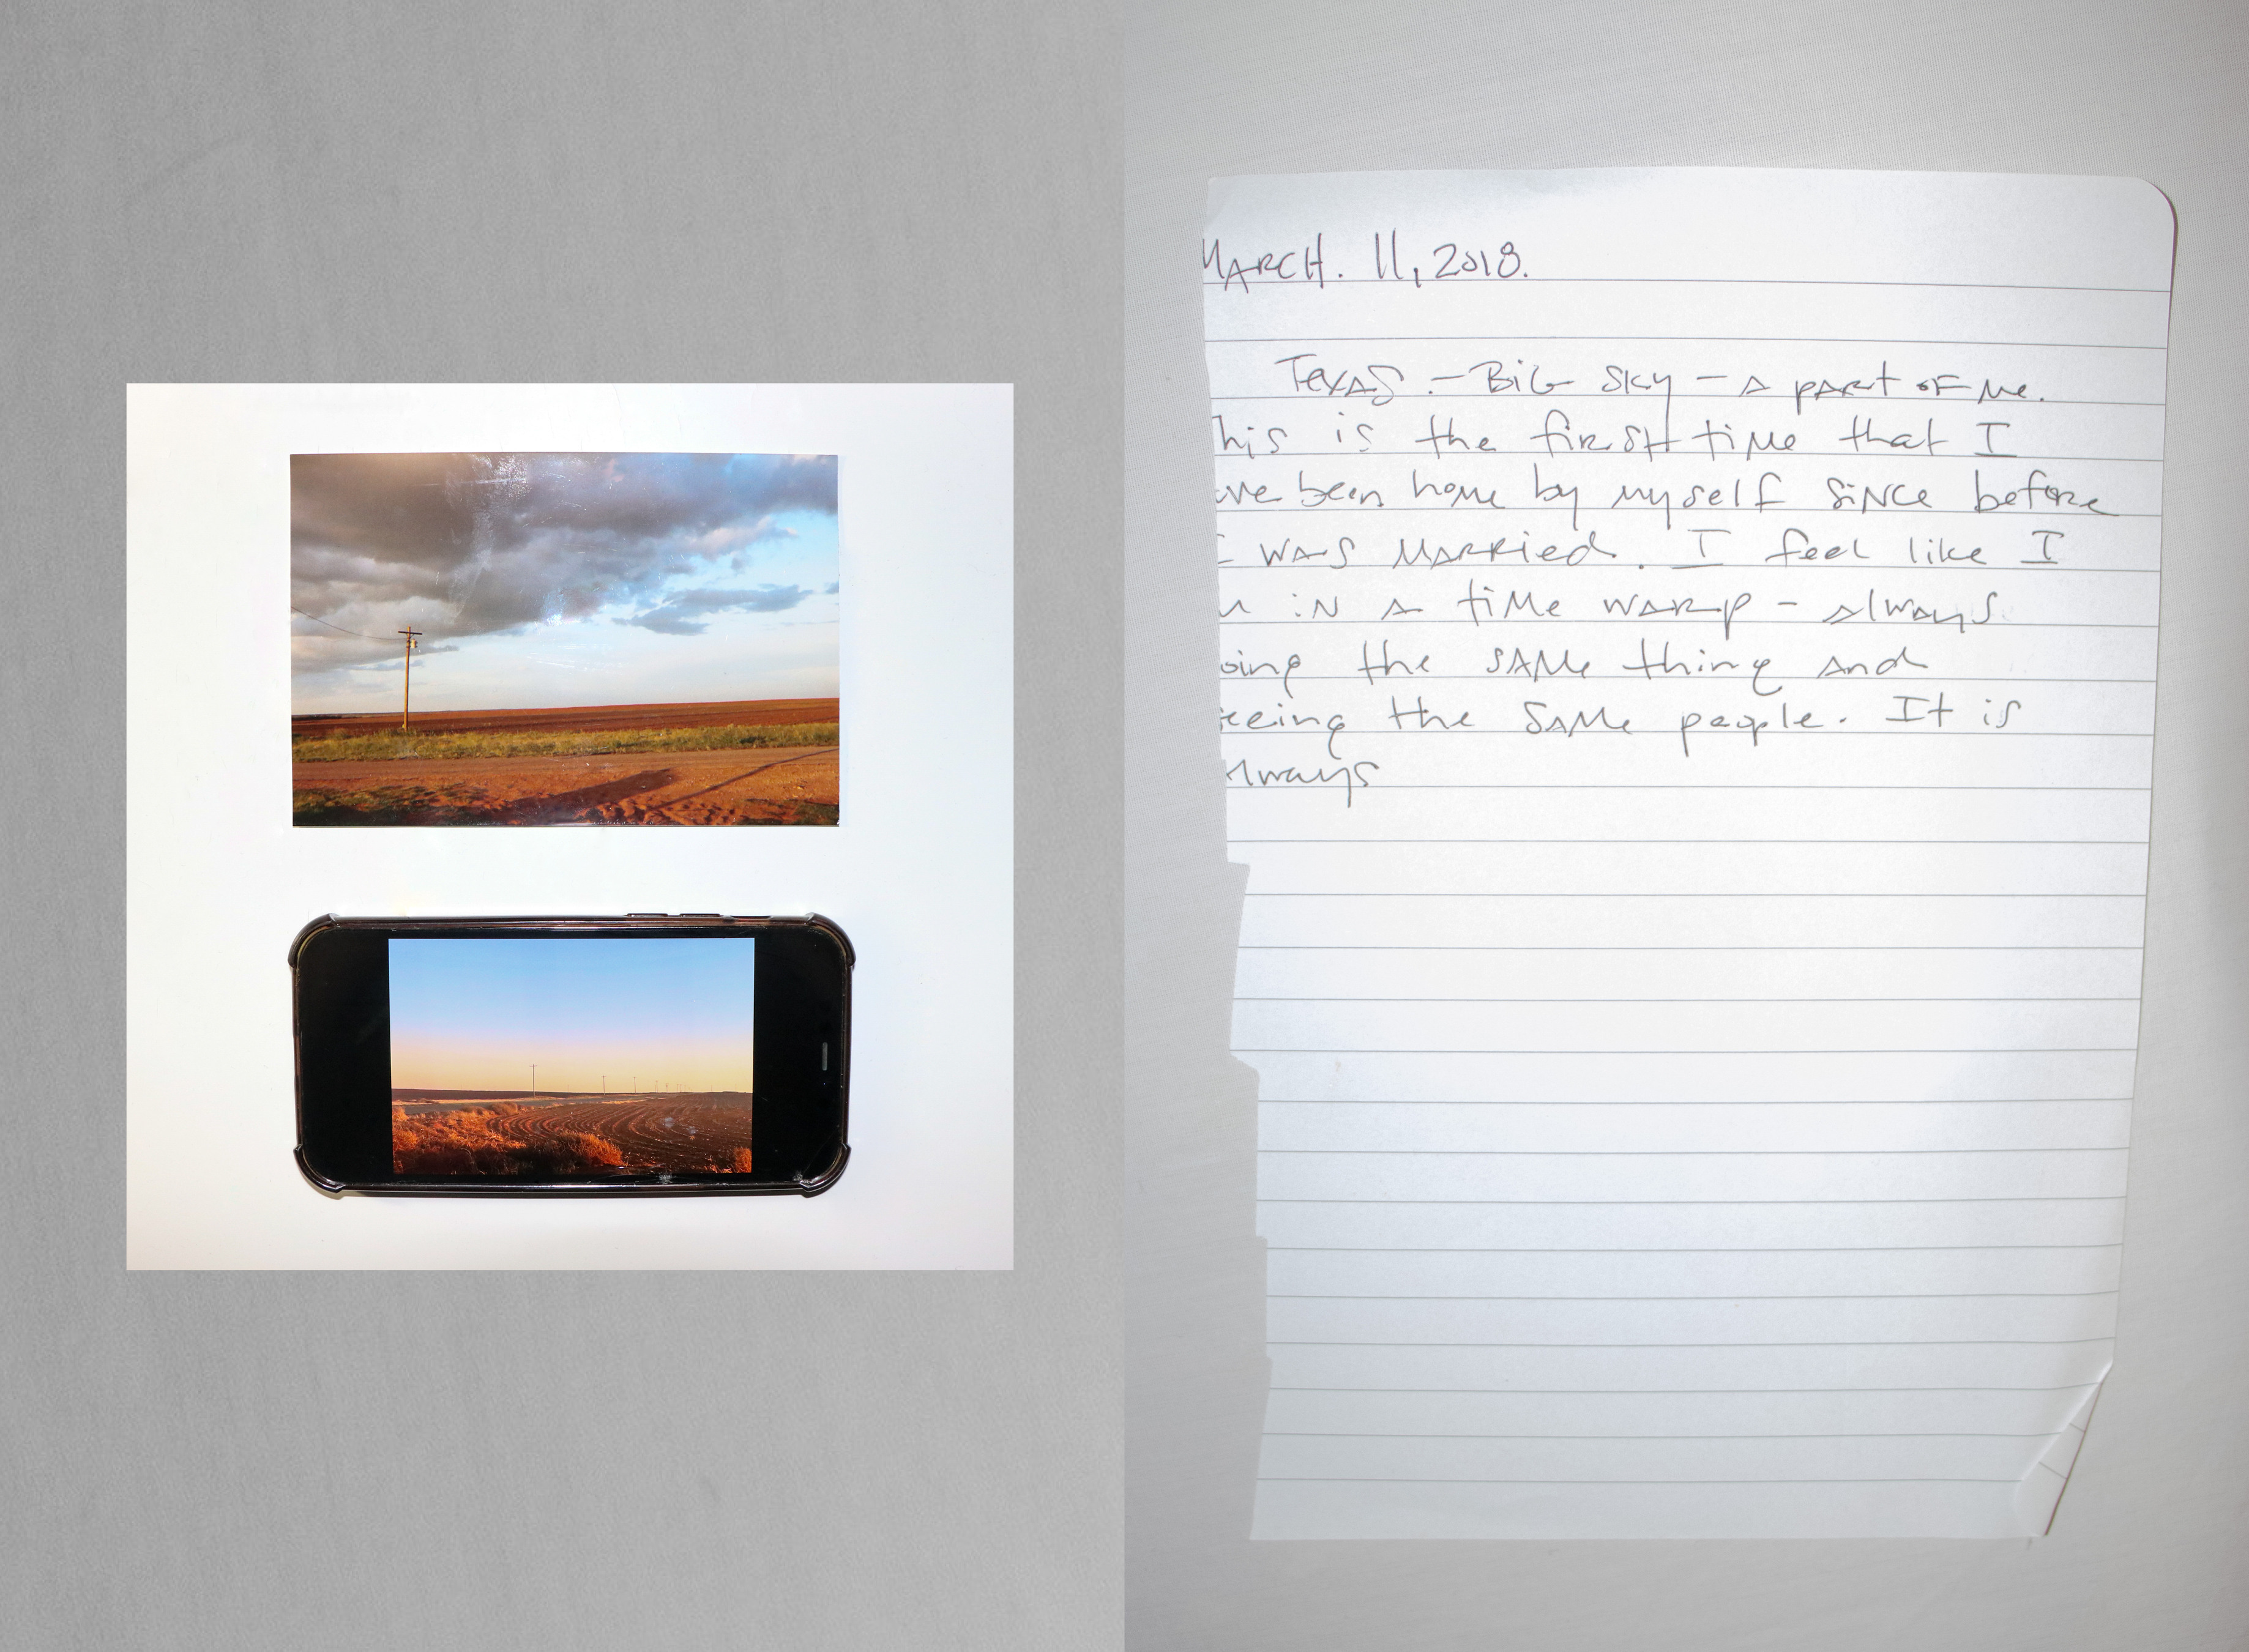 MARCH. 11, 2018.
Texas. - Big Sky - a part of me.
his is the first time that I
ve been home by myself since before
I was married. I feel like I
in a time warp - always
oing the same thing and
eeing the same people. It is
lways